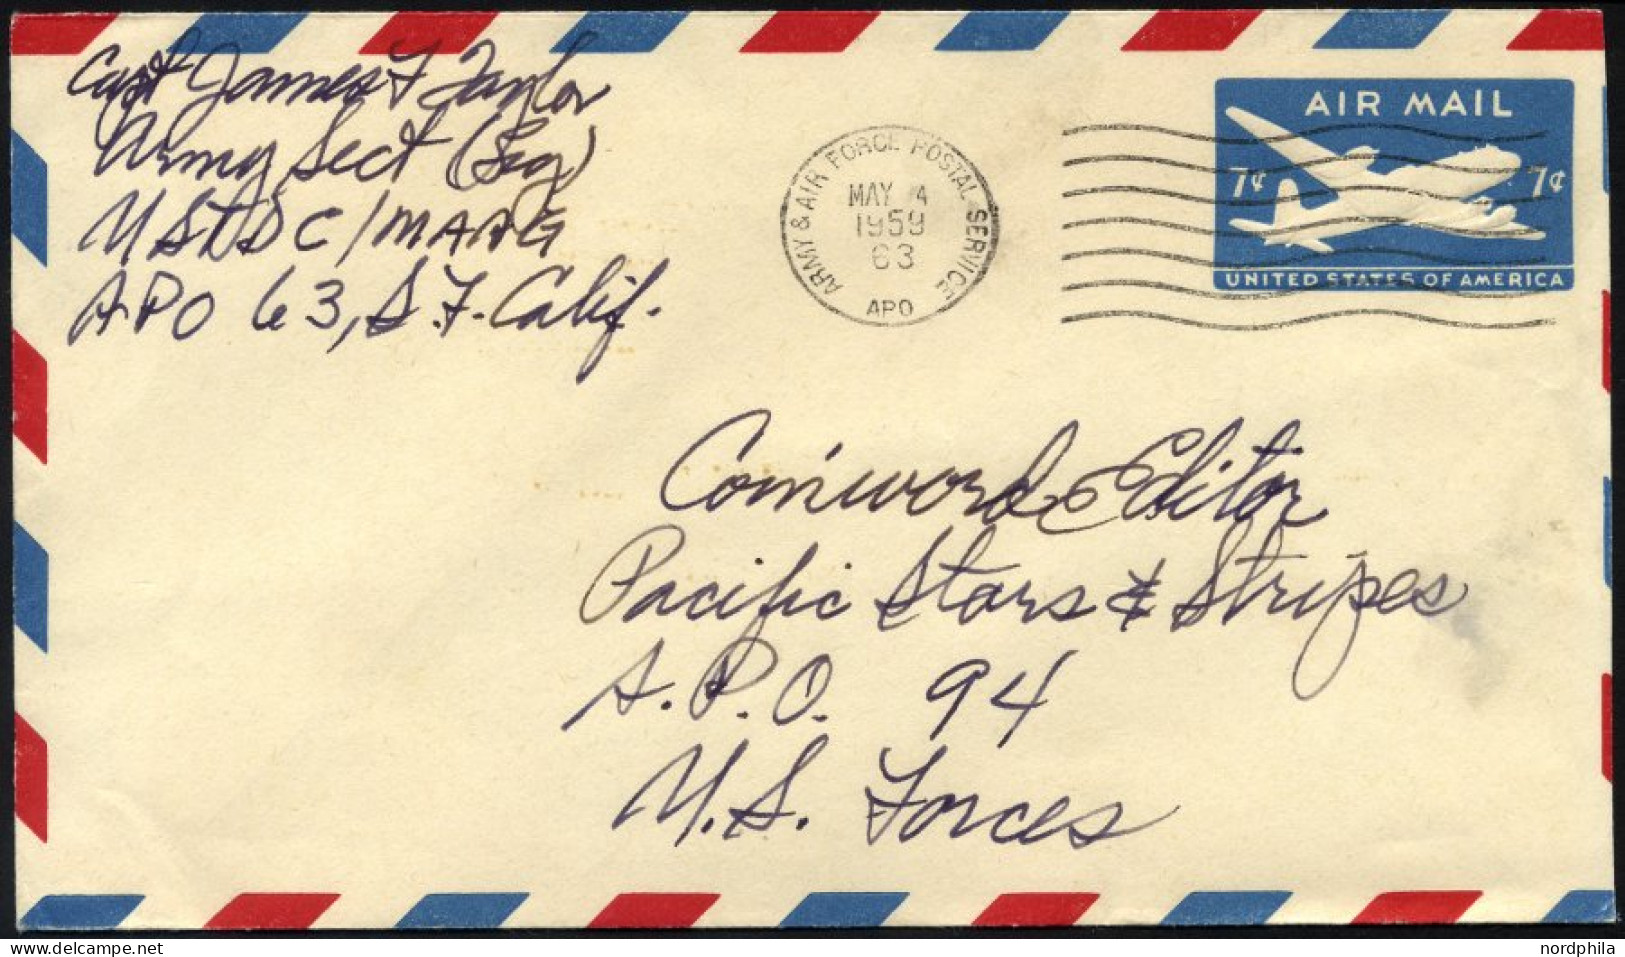 Capt James F Taylor
Army Sect (Seg)
USTDC/MAAG
APO 63, S.F. Calif.
ARMY & AIR FORCE POSTAL SERVICE
MAY 4
1959
63
APO
AIR MAIL
7¢ 7¢
UNITED STATES OF AMERICA
Coinword Editor
Pacific Stars & Stripes
A.P.O. 94
U.S. Forces
www.delcampe.net
nordphila